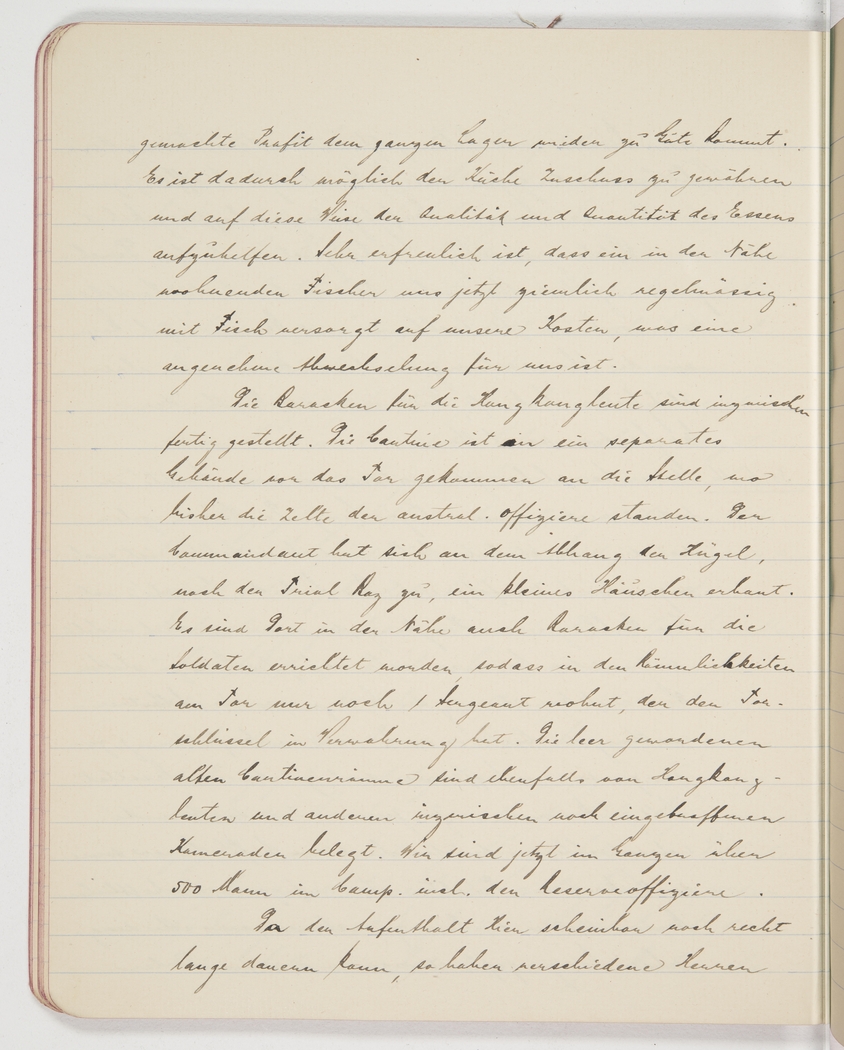 gemachte Profit dem ganzen Lager wieder zu Gute kommt.
Es ist dadurch möglich der Küche Zuschuss zu gewähren
und auf diese Weise der Qualität und Quantität des Essens
aufzuhelfen. Sehr erfreulich ist, dass ein in der Nähe
wohnenden Fischer uns jetzt ziemlich regelmässig
mit Fisch versorgt auf unsere Kosten, was eine
angenehme Abwechselung für uns ist.
Die Baracken für die Hongkongleute sind inzwischen
fertig gestellt. Die Cantine ist in ein separates
Gebäude vor das Tor gekommen an die Stelle, wo
bisher die Zelte der austral. Offiziere standen. Der
Commandant hat sich an dem Abhang der Hügel,
nach der Trial Bay zu, ein kleines Häuschen erbaut.
Es sind Dort in der Nähe auch Baracken für die
Soldaten errichtet worden, sodass in den Räumlichkeiten
am Tor nur noch 1 Sergeant wohnt, der den Tor-
schlüssel in Verwahrung hat. Die leer gewordenen
alten Cantinenräume sind ebenfalls von Hongkong-
leuten und anderen inzwischen noch eingetroffenen
Kameraden belegt. Wir sind jetzt im Ganzen über
500 Mann im Camp. incl. der Reserveoffiziere.
Da der Aufenthalt Hier scheinbar noch recht
lange dauern kann, so haben verschiedene Herren